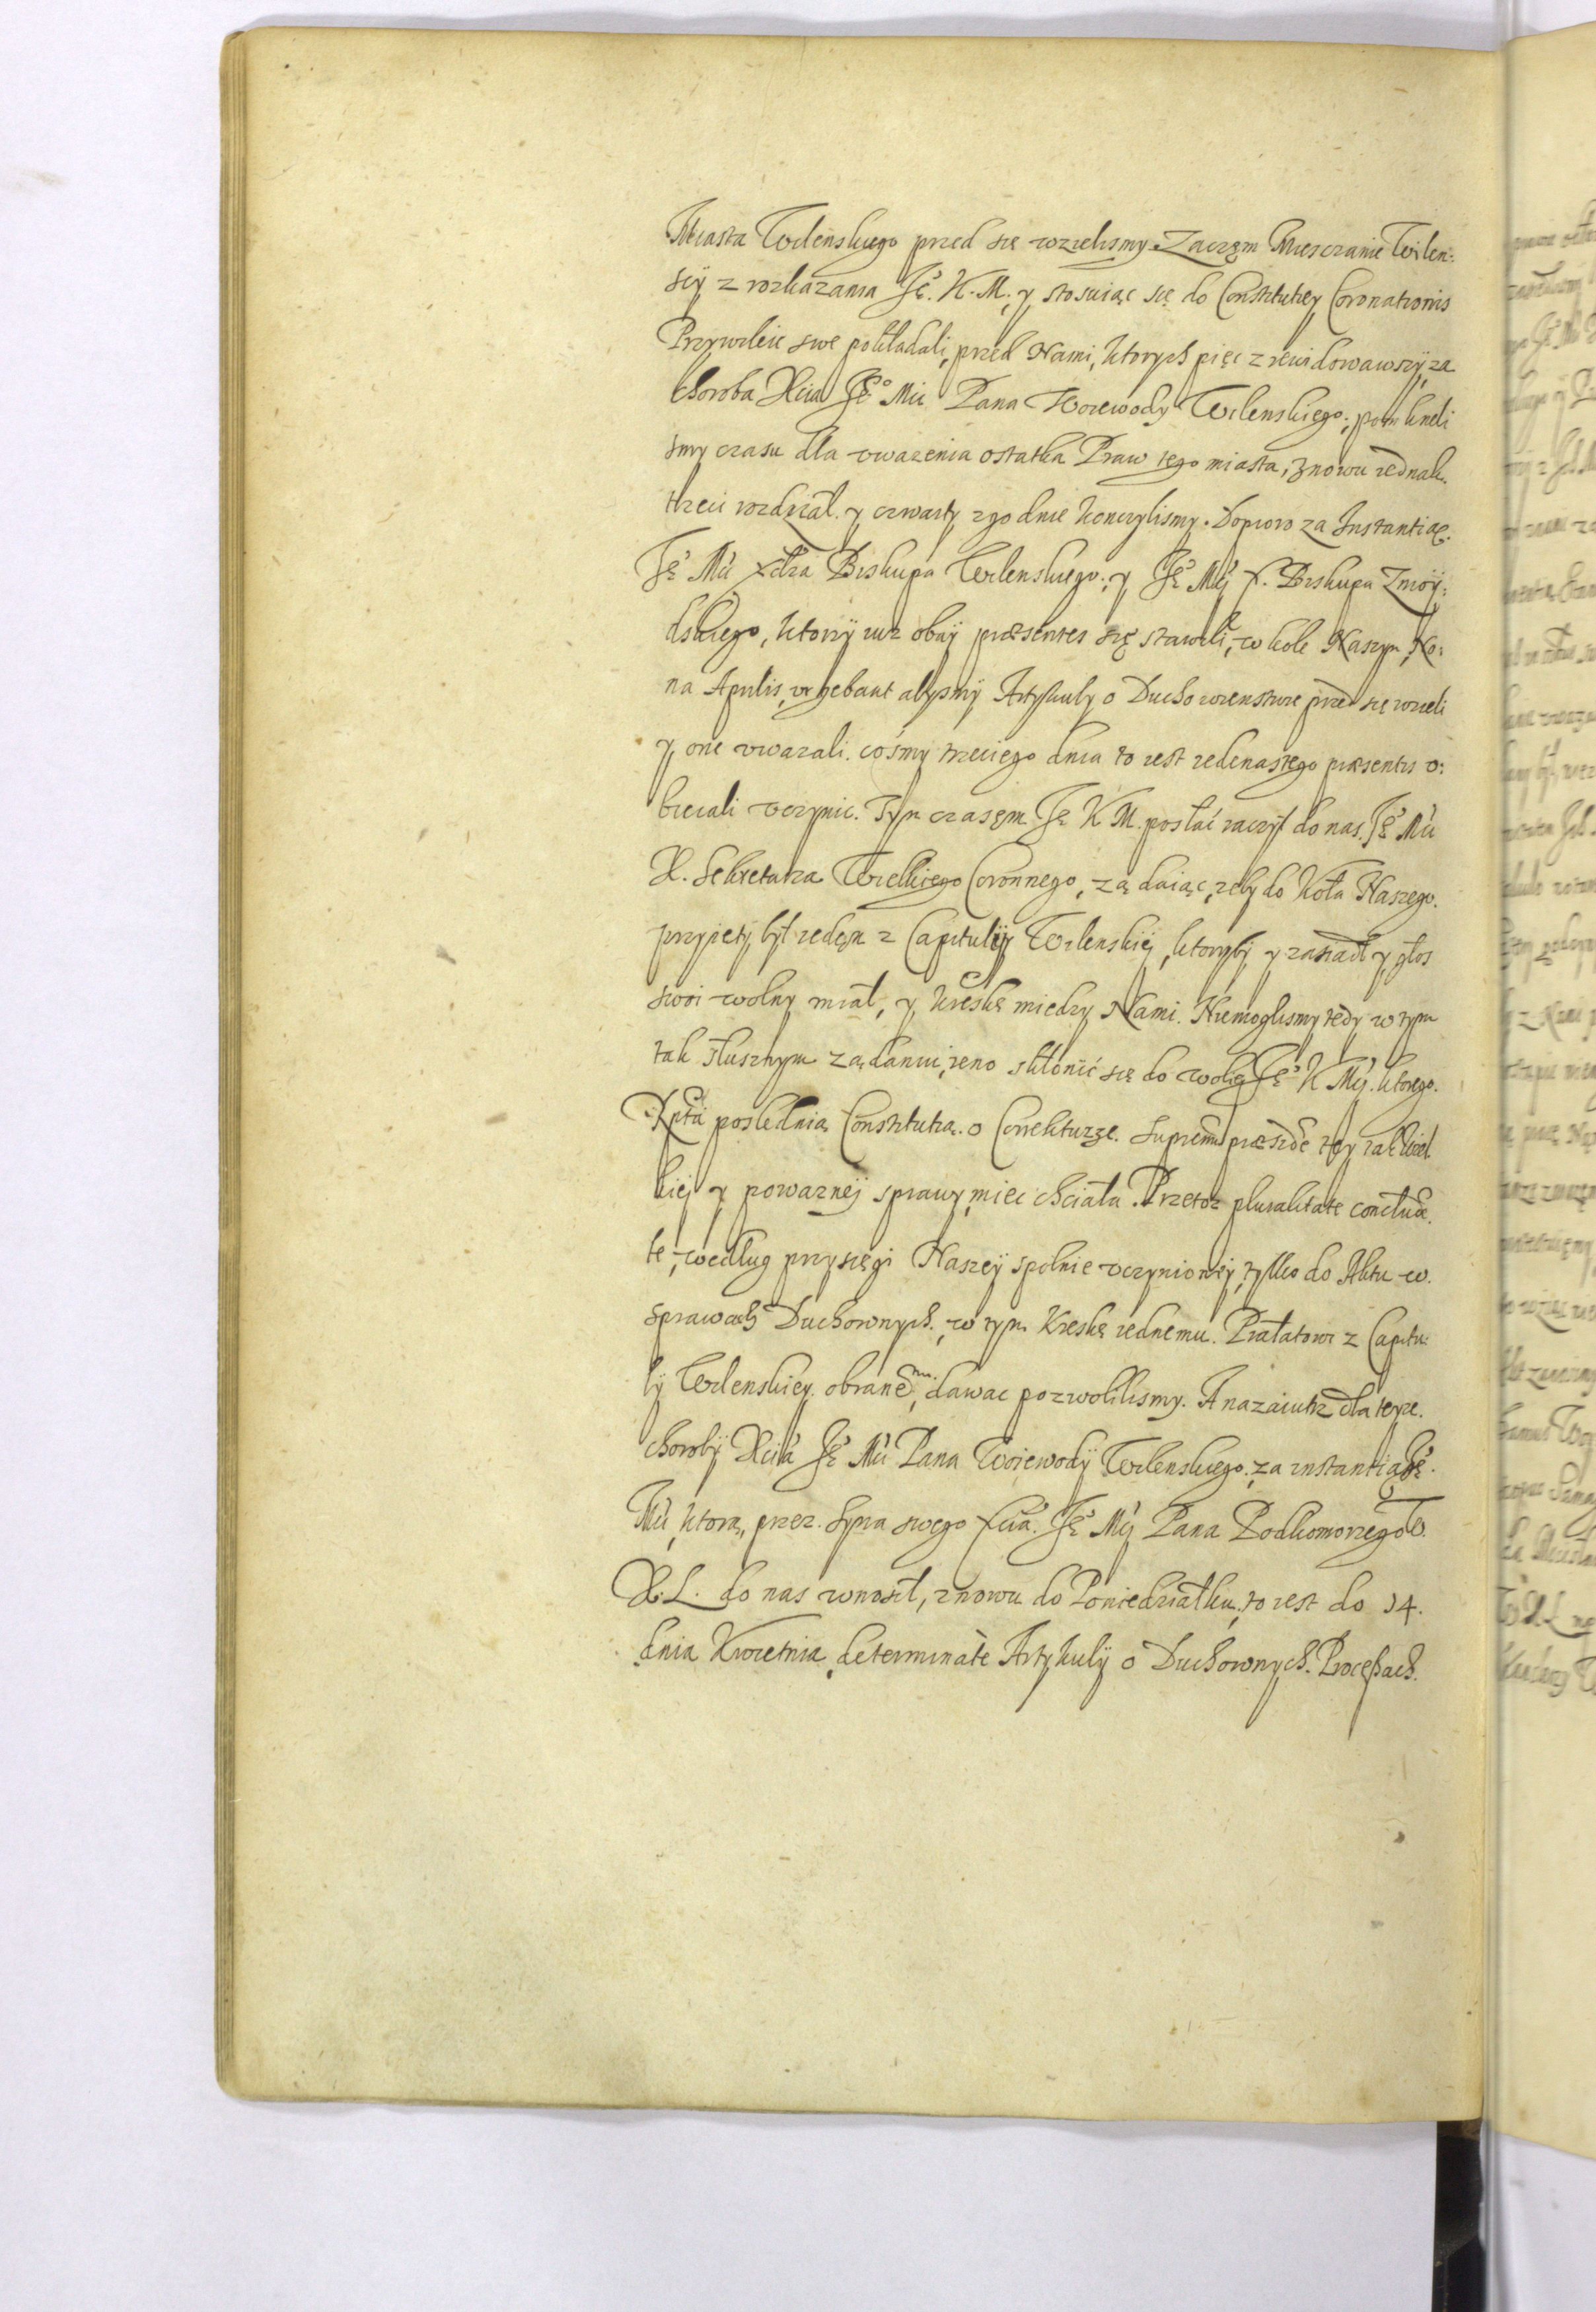 Miasta Wilenskiego przed się wzielismy. Zaczęm Miesczanie Wilen:
scÿ z rozkazania Je͞. K. M. y stosuiąc się do Constitutiey Coronationis
Przywileie swe pokładali, przed Nami, ktorych pięc zrewidowawszÿ, za
choroba Xcia Je͞o Mci Pana Woiewody Wilenskiego; pomkneli
smy czasu dla vwazenia ostatka Praw tego miasta, znowu iednak.
trzeci rozdział. y czwarty zgodnie konczylismy. Dopiero za Instantiae.
Je͞ Mci xdza Biskupa Wilenskiego; y Je͞ Mći x. Biskupa Zmoÿ:
dskiego, ktorzÿ iuz obaÿ præsentes się stawili, w kole Naszym,
abysmÿ Artykuły o Duchowienstwie przed się wzieli
y one vwazali. cośmy trzeciego dnia to iest iedenastego præsentis o:
biecali vczynic. Tym czasęm Je͞ K M. posłać raczył do nas. Je͞ Mći
X. Sekretarza Wielkiego Coronnego, ządaiąc, zeby do Koła Naszego.
przyięty był iedęn z Capitulÿ Wilenskiej, ktoryby y zasiadł y głos
swoi wolny miał, y kreskę miedzy Nami. Niemoglismy tedy w tym
tak słusznym ządaniu, ieno skłonić się do wolię Je͞ K Mći. ktorego.
poslednia Constitutia. o Correkturze. tey tak wiel
kiej y powaznej sprawy, miec chciała. Przetoz pluralitate conclude.
te, według przysięgi Naszeÿ spolnie vczynioneÿ, tylko do Aktu w.
sprawach Duchownych., w tym Kreskę iednemu. Prałatowi z Capitu:
lÿ Wilenskiey. obrane͞mu., dawac pozwolilismy. A nazaiutrz dla teyze.
chorobÿ Xcia Je͞ Mći Pana Woiewodÿ Wilenskiego. za instantią Je͞.
Mći, ktorą, przez. Syna swego xcia. Je͞ Mći Pana Podkomorzego W.
X. L. do nas wnosił, znowu do Poniedziałku, to iest do 14.
dnia Kwietnia, determinate Artykulÿ o Duchownych. Procęßach.